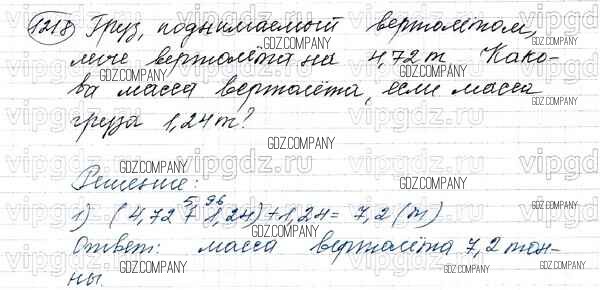 1218 Груз, поднимаемый вертолётом,
легче вертолёта на 4,72 т Како-
ва масса вертолёта, если масса
груза 1,24 т?
Решение:
5,96
1) (4,72 + 1,24) + 1,24 = 7,2 (т)
Ответ: масса вертолёта 7,2 тон-
ны
GDZ.COMPANY
vipgdz.ru